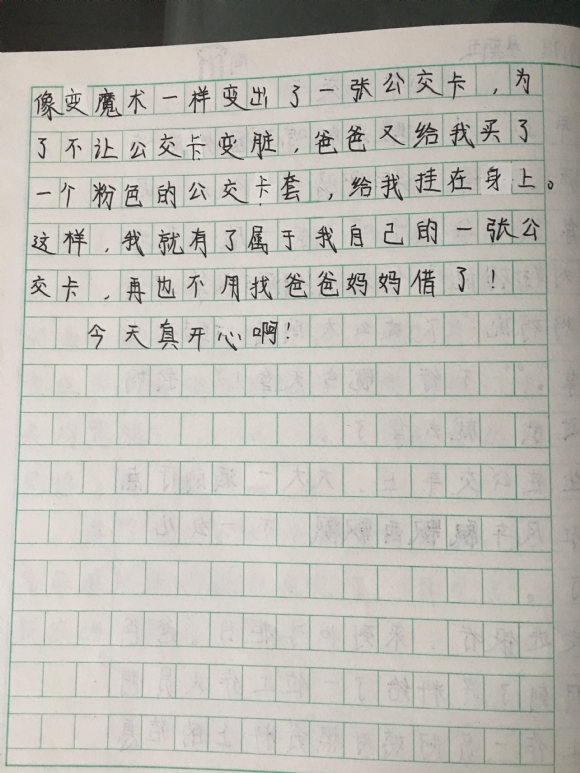 像变魔术一样变出了一张公交卡，为
了不让公交卡变脏，爸爸又给我买了
一个粉色的公交卡套，给我挂在身上。
这样，我就有了属于我自己的一张公
交卡，再也不用找爸爸妈妈借了！
今天真开心啊！